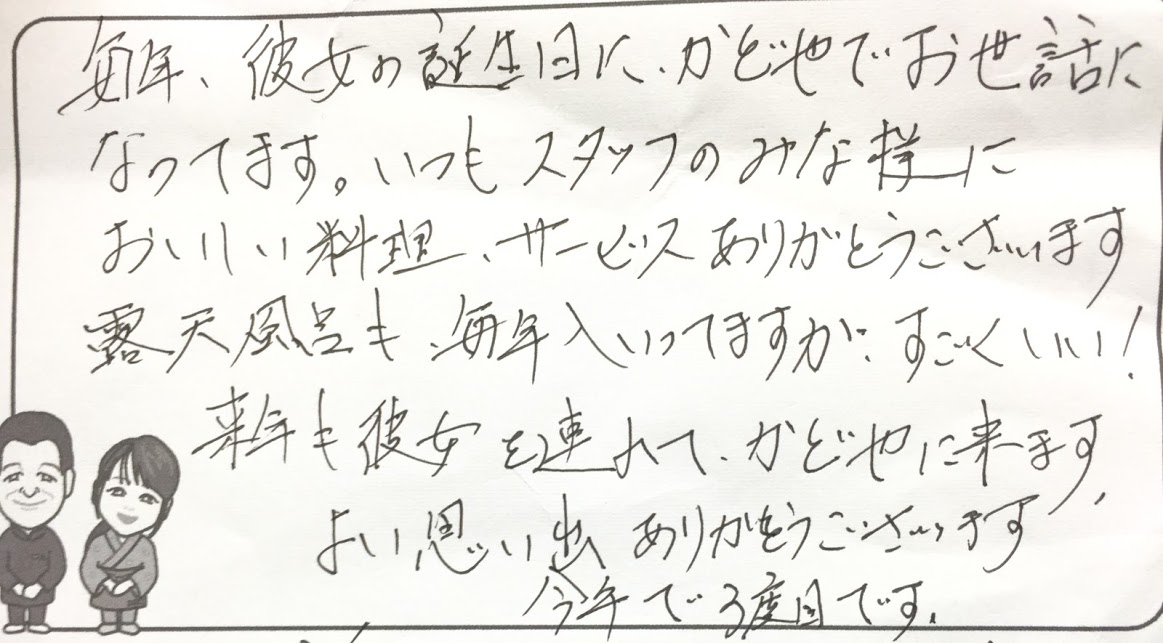 毎年、彼女の誕生日に、かどやでお世話に
なってます。いつもスタッフのみな様に
おいしい料理、サービスありがとうございます
露天風呂も、毎年入いってますが、すごくいい!
来年も彼女を連れて、かどやに来ます、
よい思い出ありがとうございます
今年で3度目です。